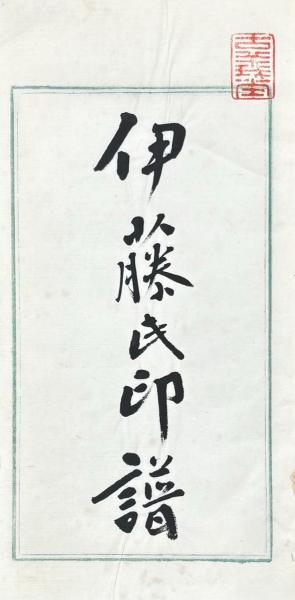 伊藤氏印譜